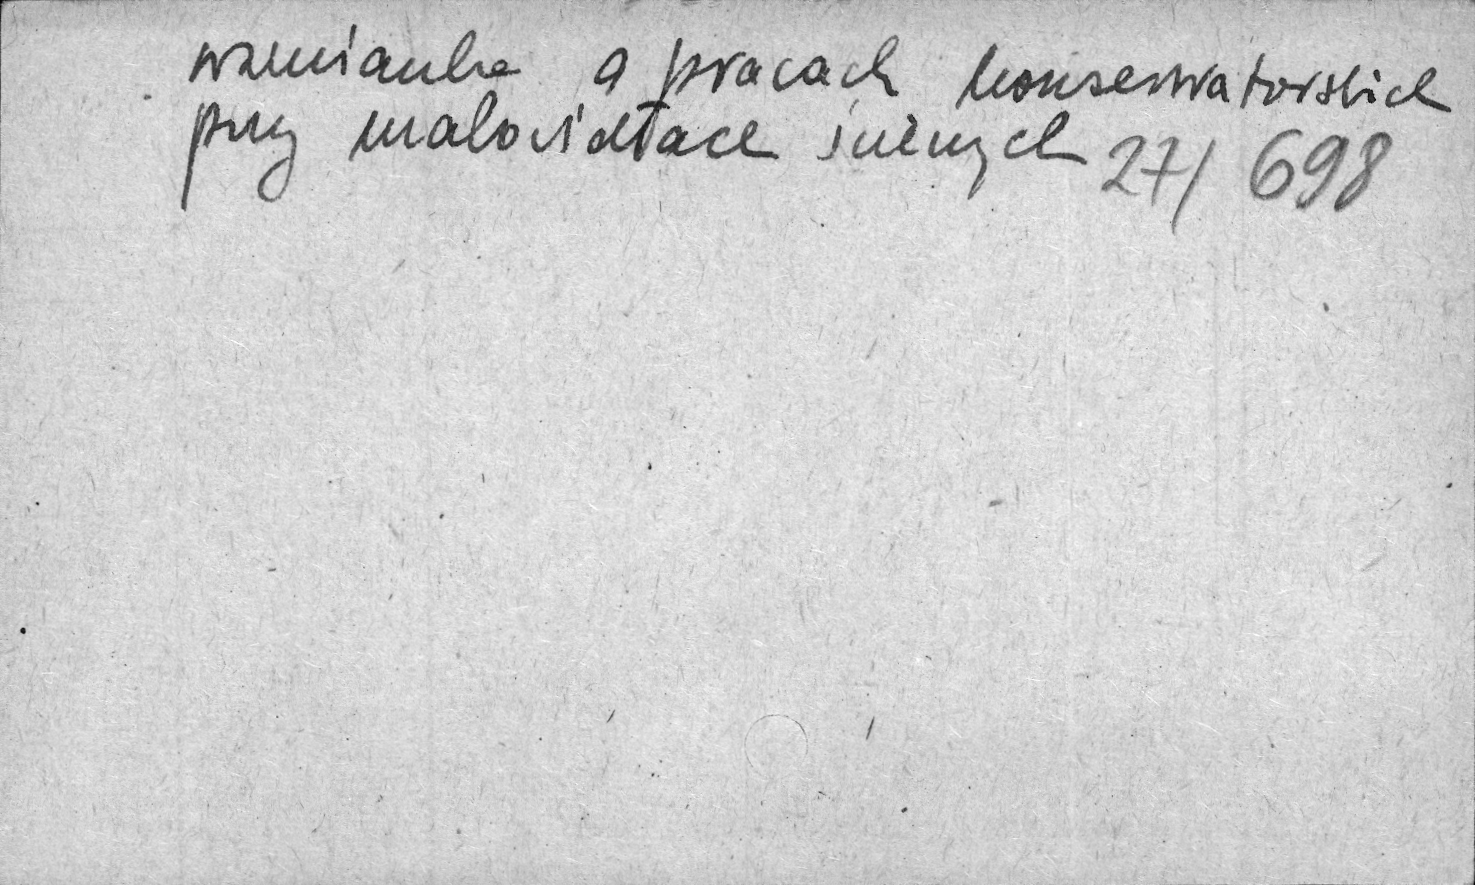 wzmianka o pracach konserwatorskich
przy malowidłach ściennych 27/698